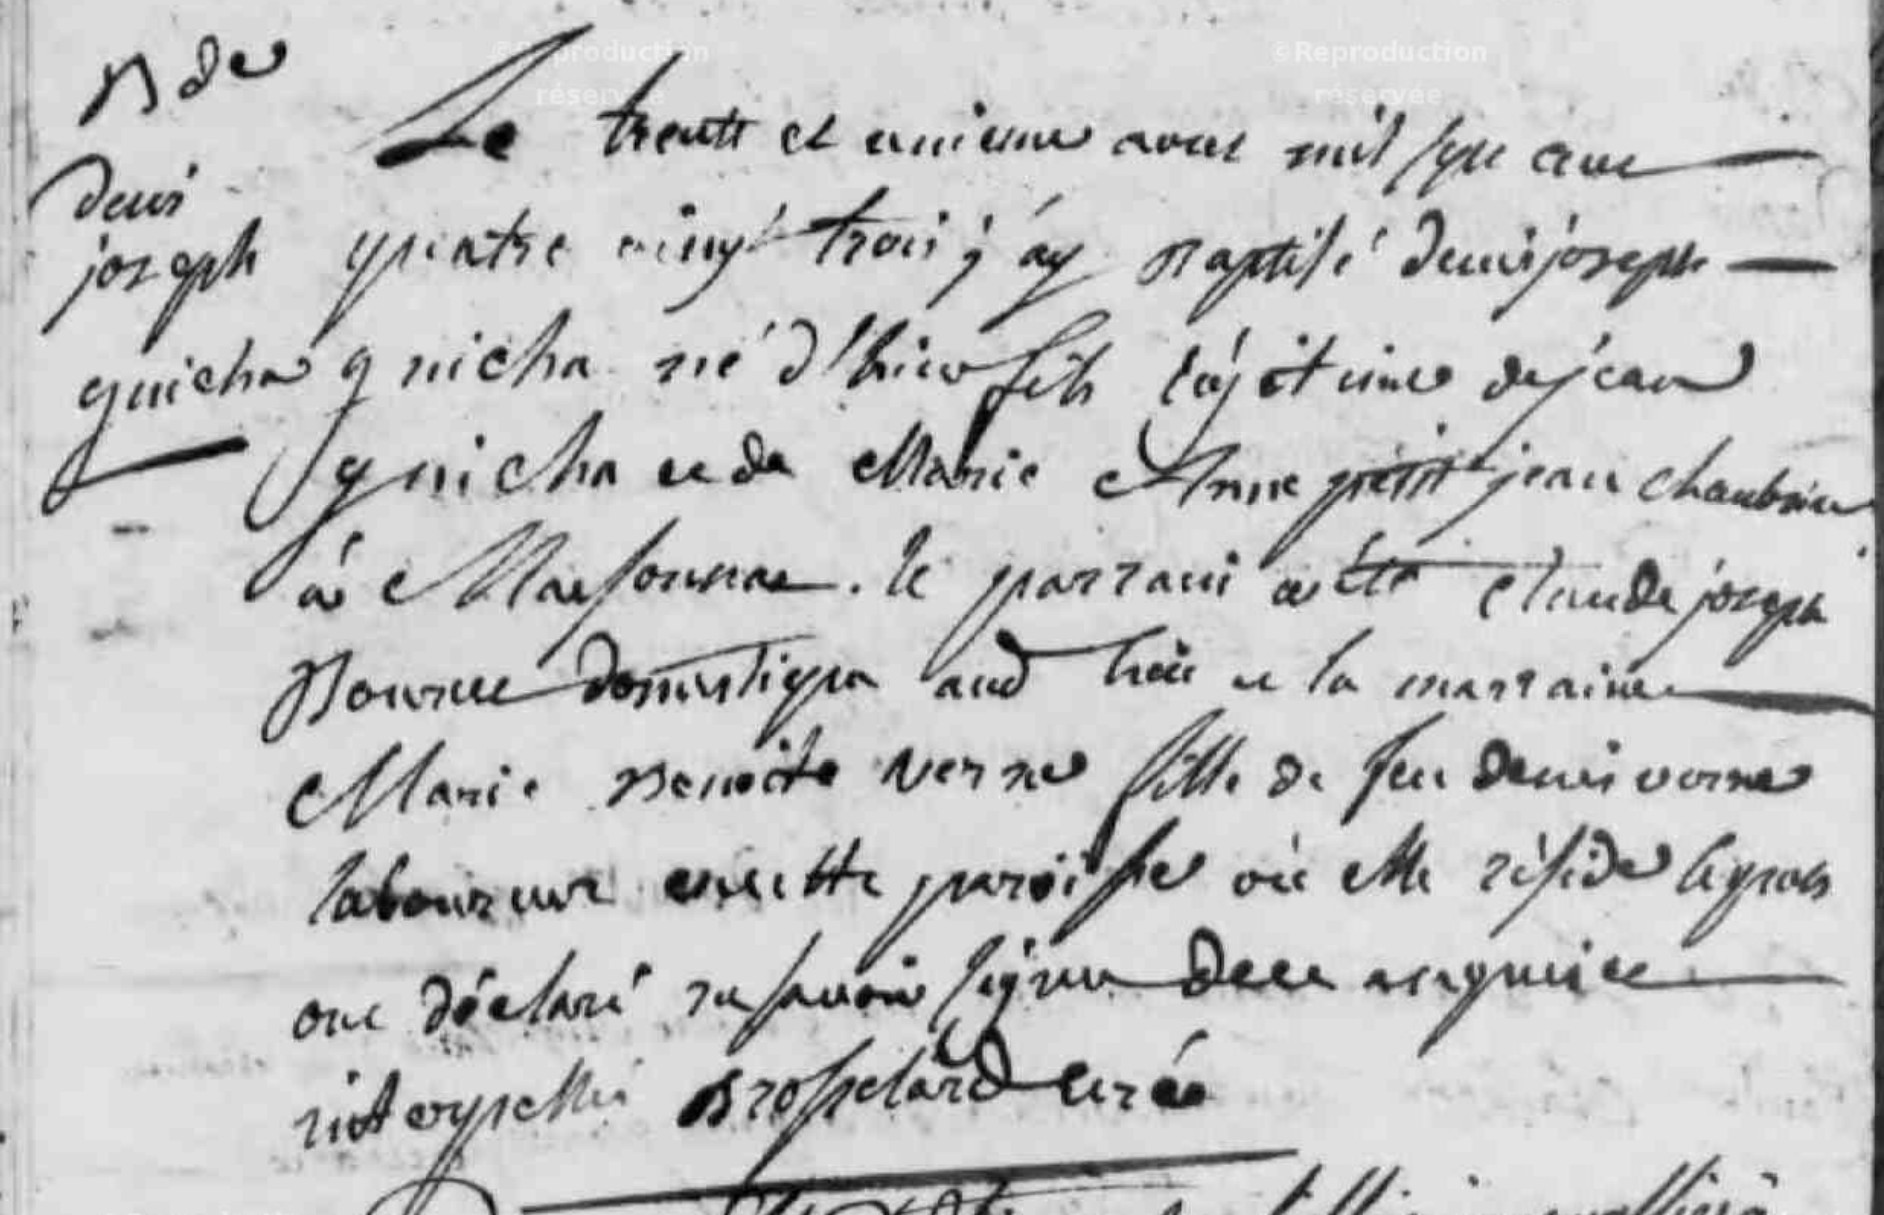 B de
denis
joseph
guicha
Le trente et unieme aout mil sept cent
quatre vingt trois j'ay Baptisé denis joseph
guicha né d'hier fils légitime de jean
guicha et de Marie Anne petit jean
à . le parrain a été claude joseph
domestique aud lieu et la marraine
Marie Benoite verne fille de feu denis verne
laboureur en cette paroisse où elle réside lesquels
ont déclaré ne savoir signer de ce enquis et
interpellés Brosselard curé
©Reproduction
réservée
©Reproduction
réservée